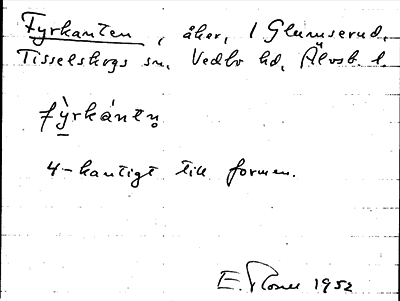 Fyrkanten, åker, 1 Glumserud,
Tisselskogs sn, Vedbo hd, Älvsb. l.
fỳrkántn̥
4-kantigt till formen.
E. 1952